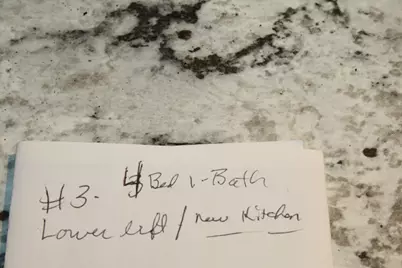 #3. 4 Bed 1-Bath
Lower left / new Kitchen